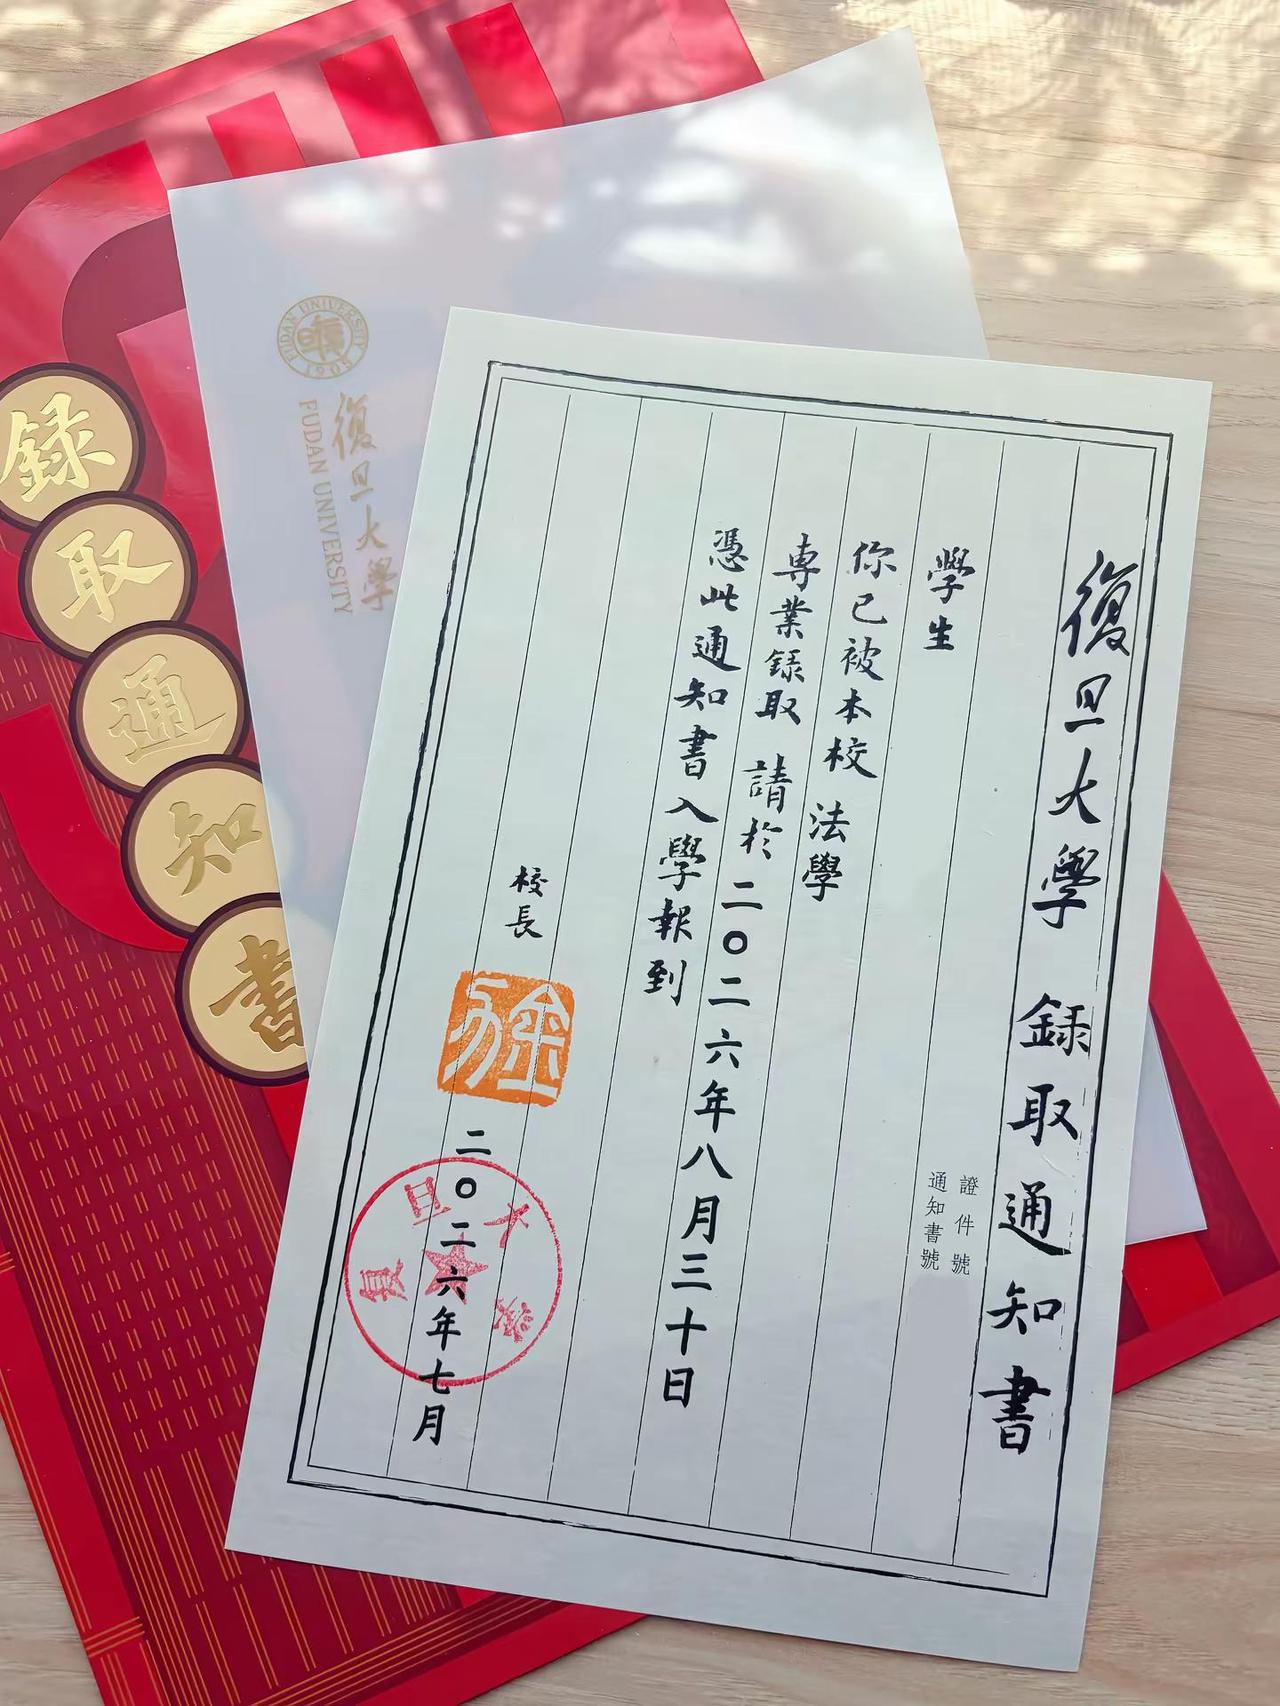 復旦大學 錄取通知書
證件號
通知書號
學生
你已被本校 法學
專業錄取 請於二〇二六年八月三十日
憑此通知書入學報到
校長
二〇二六年七月
復旦大學
FUDAN UNIVERSITY 1905
復旦大學
FUDAN UNIVERSITY
錄取通知書